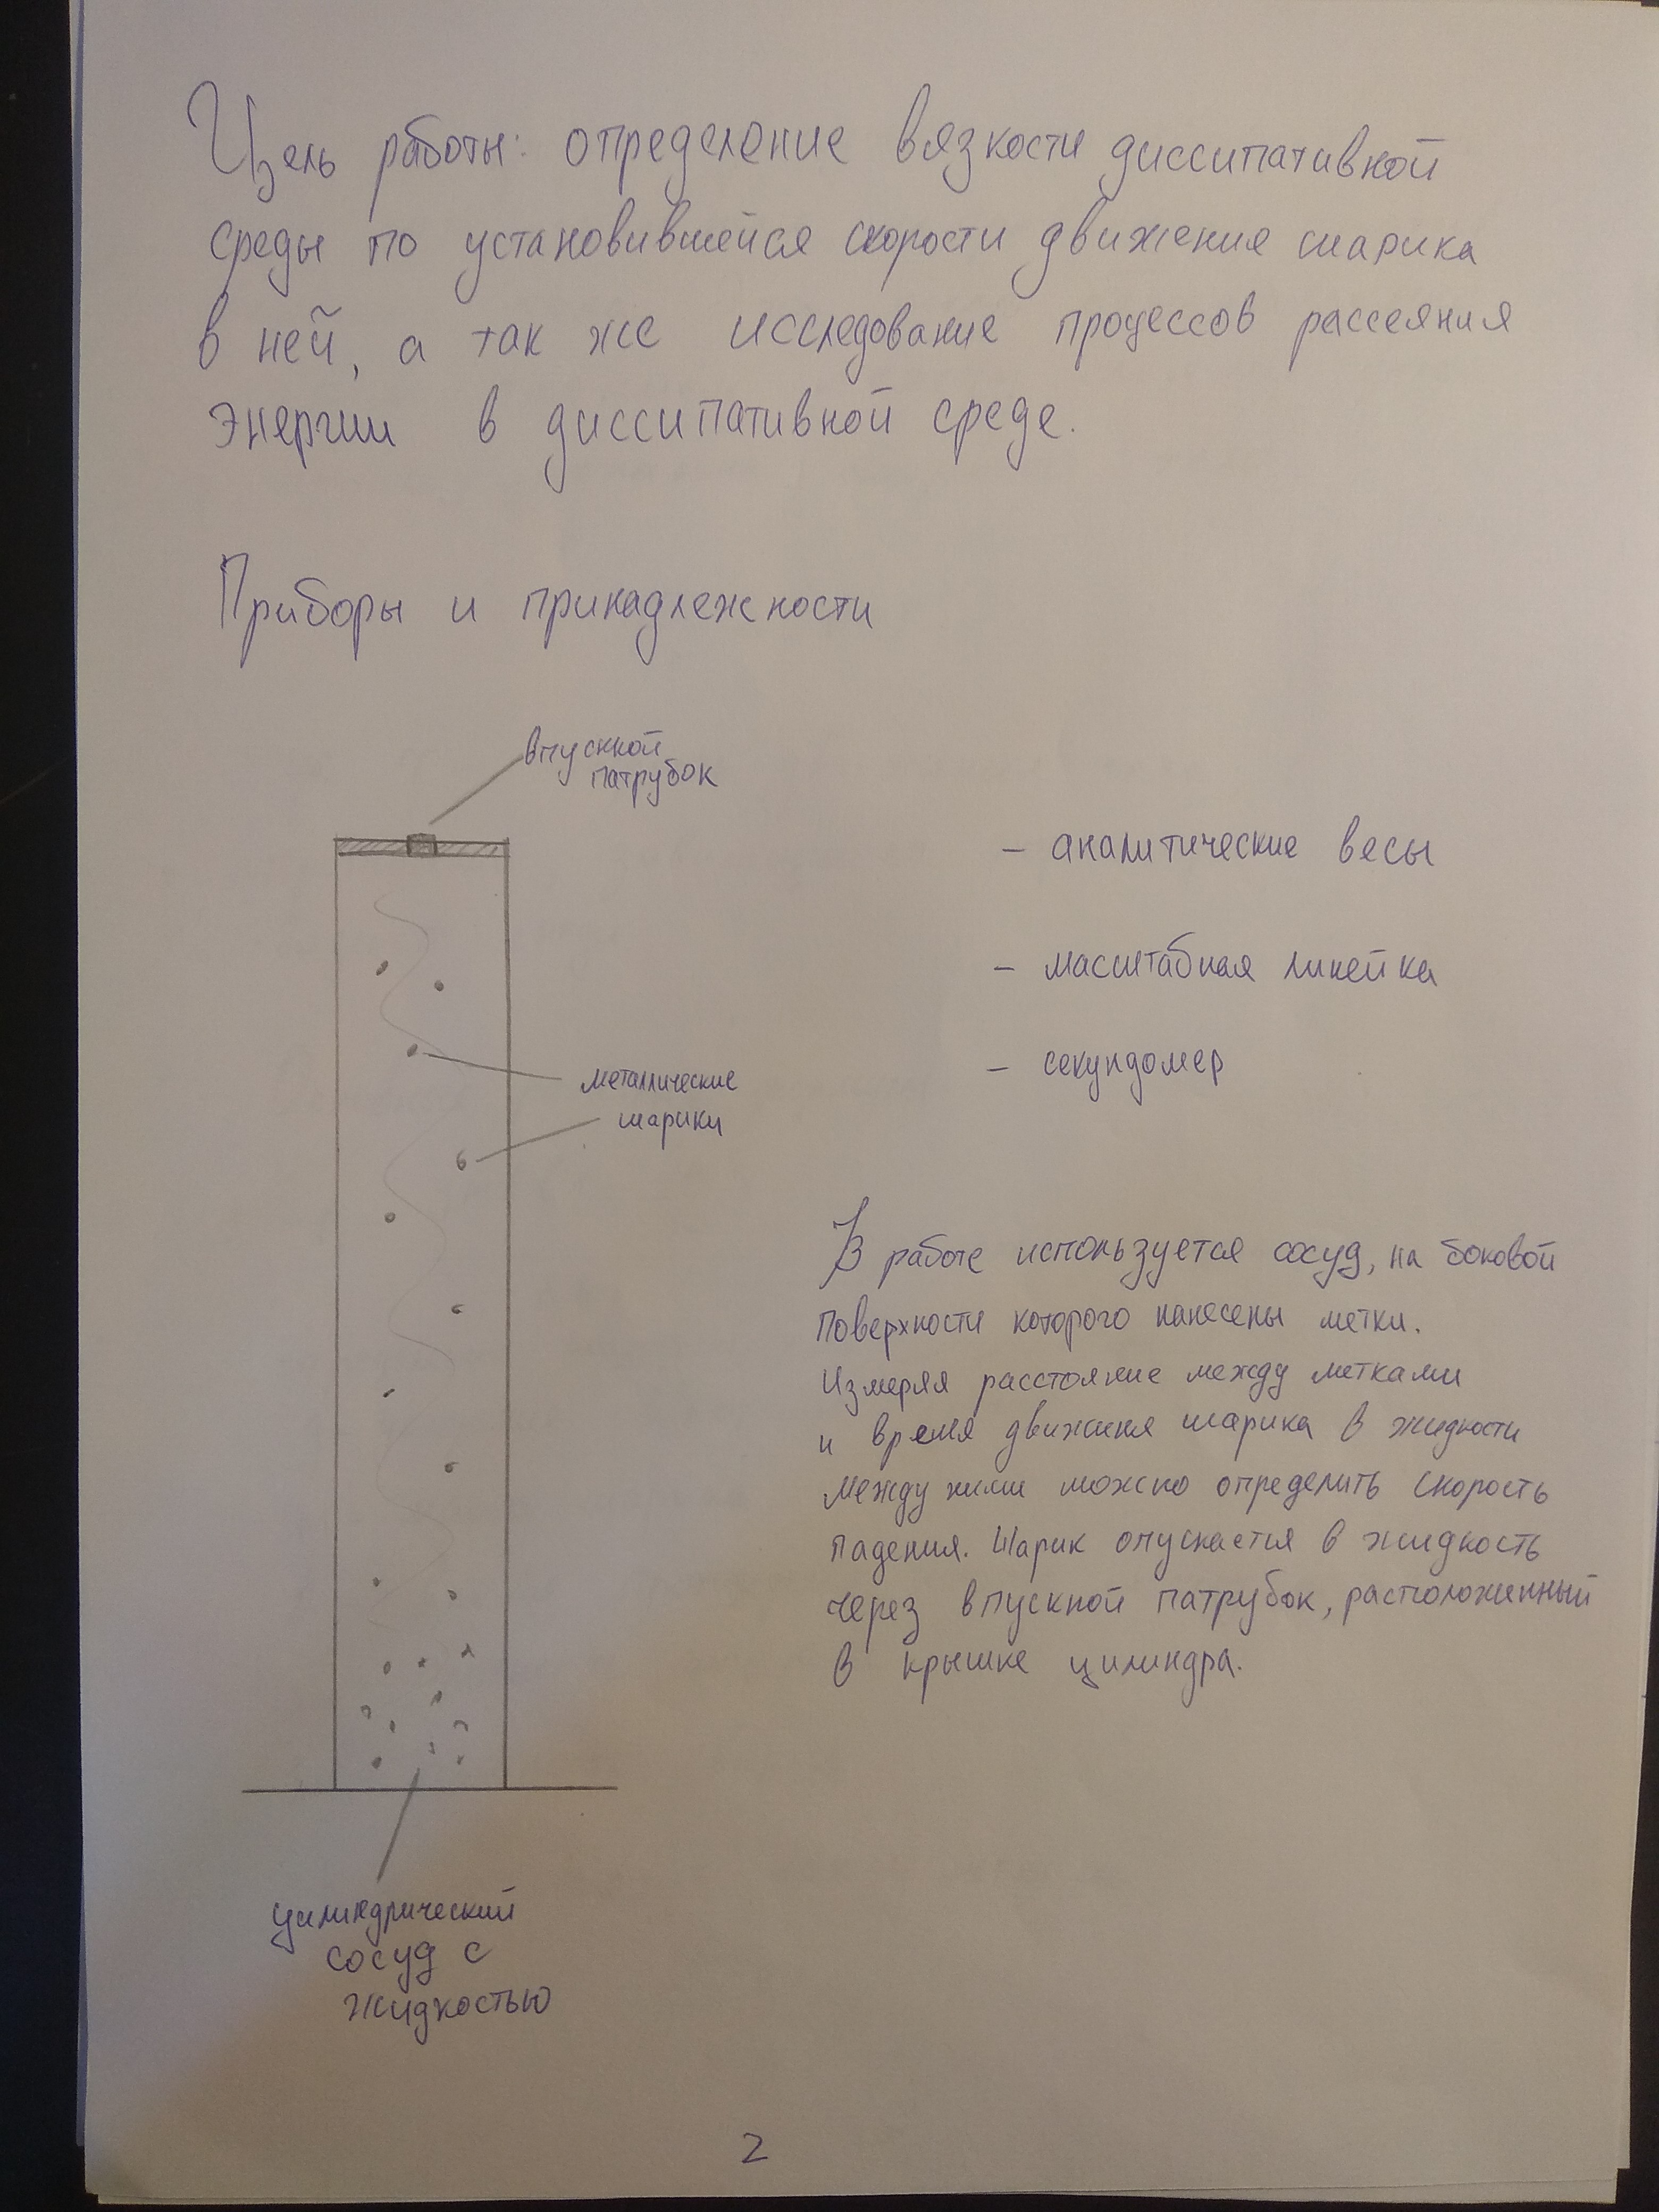 Цель работы: определение вязкости диссипативной
среды по установившейся скорости движения шарика
в ней, а так же исследование процессов рассеяния
энергии в диссипативной среде.
Приборы и принадлежности
впускной
патрубок
металлические
шарики
цилиндрический
сосуд с
жидкостью
- аналитические весы
- масштабная линейка
- секундомер
В работе используется сосуд, на боковой
поверхности которого нанесены метки.
Измеряя расстояние между метками
и время движения шарика в жидкости
между ними можно определить скорость
падения. Шарик опускается в жидкость
через впускной патрубок, расположенный
в крышке цилиндра.
2